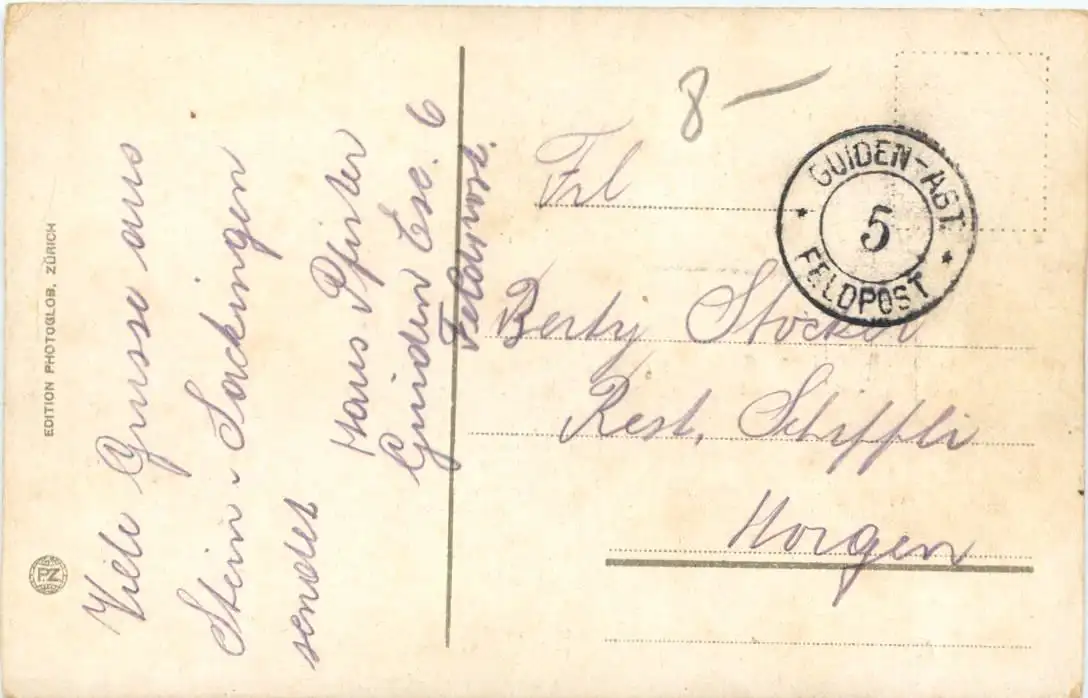 EDITION PHOTOGLOB, ZÜRICH
PZ
Viele Grüsse aus
Stein-Säckingen
sendet
Hans Pfister
Guiden Esc. 6
Feldpost.
8 —
GUIDEN-ABT.
5
FELDPOST
Frl
Berty Stocker
Rest. Schiffli
Horgen